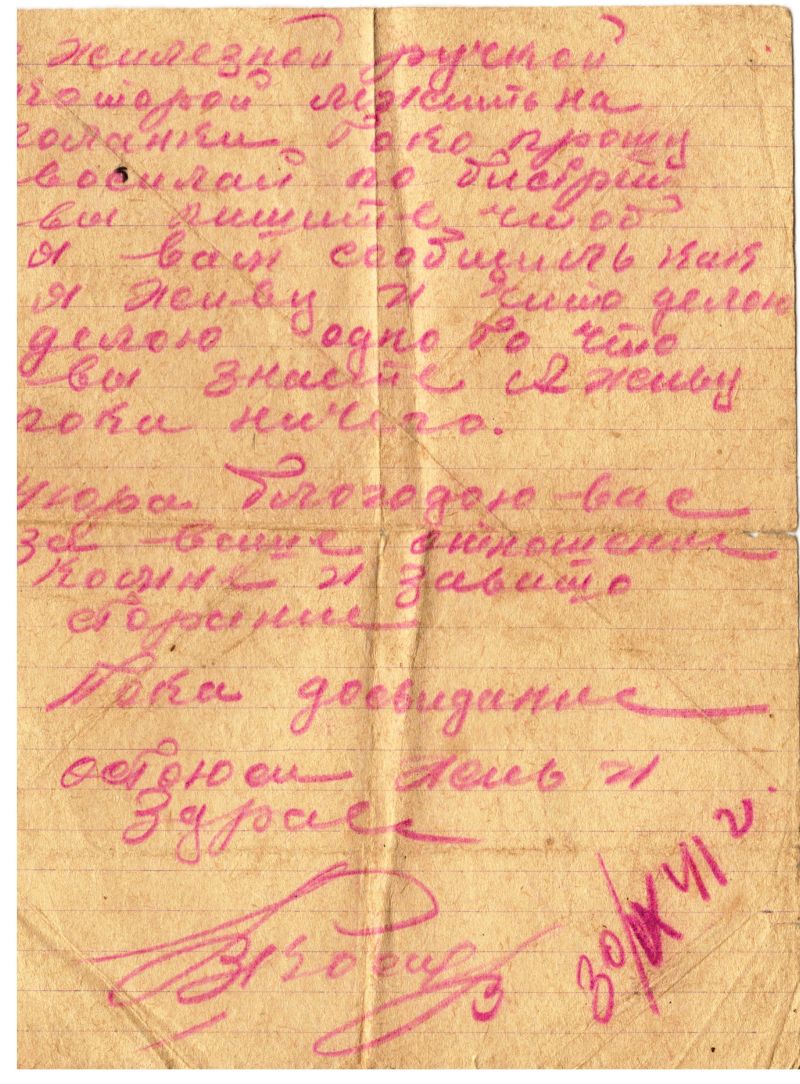 с жилезной ручкой
которой лежить на
голанки Токо прошу
восилай по бистрей
вы пишите чтоб
я вам сообщить как
я живу и что делою
делою одно то что
вы знаете Я живу
пока ничего.
Шюра блогодою вас
за ваше отношение
комне и завашо
старание
Пока досвидание
остоюсь жень и
Здрав
30/IX 41 г.